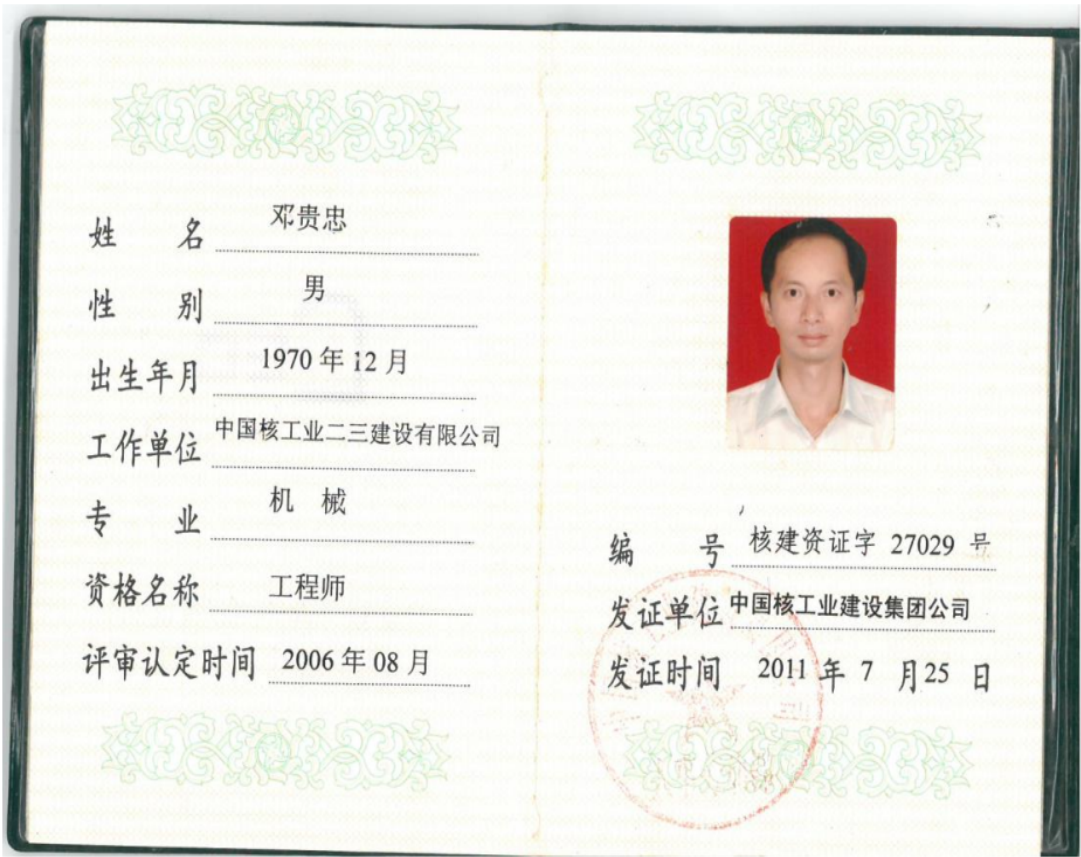 姓 名 邓贵忠
性 别 男
出生年月 1970 年 12 月
工作单位 中国核工业二三建设有限公司
专 业 机 械
资格名称 工程师
评审认定时间 2006 年 08 月
编 号 核建资证字 27029 号
发证单位 中国核工业建设集团公司
发证时间 2011 年 7 月 25 日